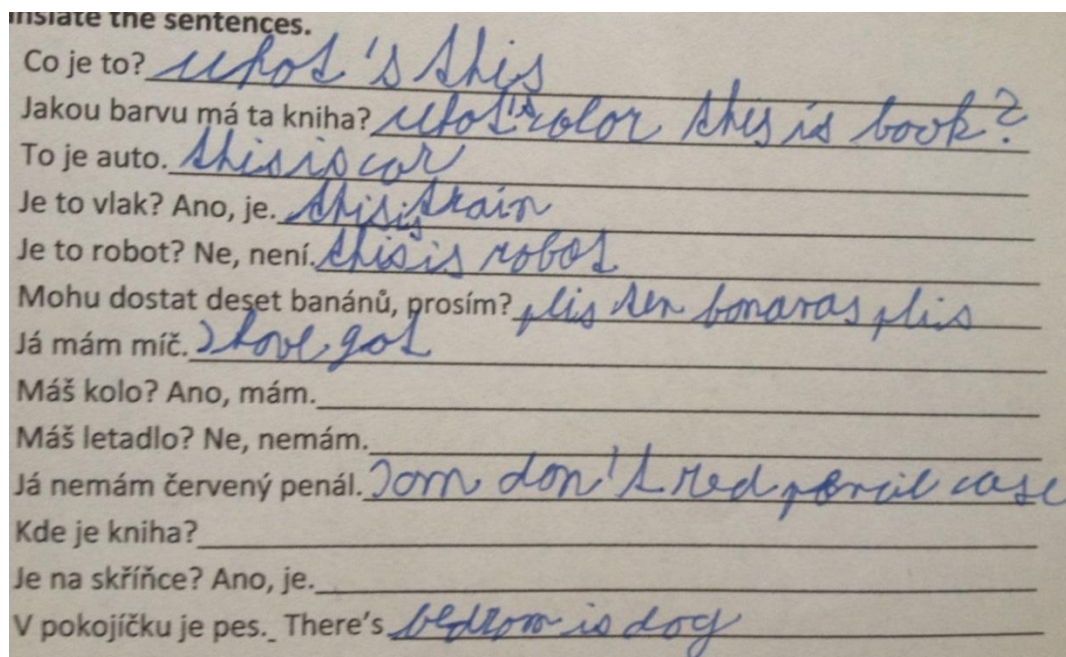 nslate the sentences.
Co je to? whot's this
Jakou barvu má ta kniha? whot's color this is book?
To je auto. this is car
Je to vlak? Ano, je. this is train
Je to robot? Ne, není. this is robot
Mohu dostat deset banánů, prosím? plis ten bonanas plis
Já mám míč. I hove got
Máš kolo? Ano, mám.
Máš letadlo? Ne, nemám.
Já nemám červený penál. I om don't red pencil case
Kde je kniha?
Je na skříňce? Ano, je.
V pokojíčku je pes. There's bedrom is dog